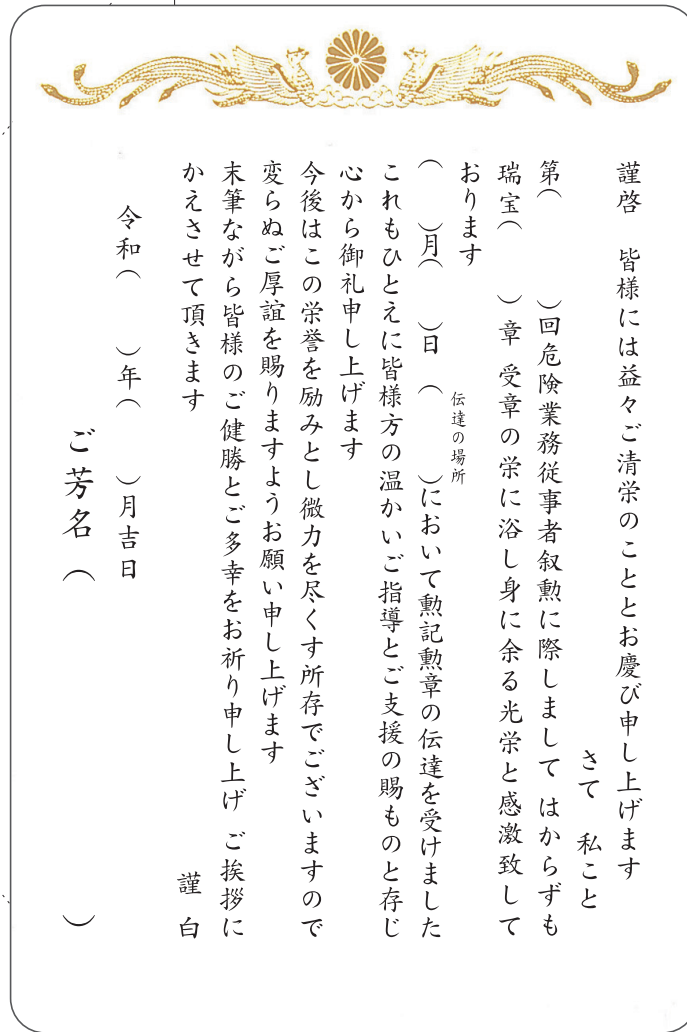 謹啓　皆様には益々ご清栄のこととお慶び申し上げます
さて　私こと
第（　　）回危険業務従事者叙勲に際しまして はからずも
瑞宝（　　）章 受章の栄に浴し身に余る光栄と感激致して
おります
伝達の場所
（　　）月（　　）日　（　　）において勲記勲章の伝達を受けました
これもひとえに皆様方の温かいご指導とご支援の賜ものと存じ
心から御礼申し上げます
今後はこの栄誉を励みとし微力を尽くす所存でございますので
変らぬご厚誼を賜りますようお願い申し上げます
末筆ながら皆様のご健勝とご多幸をお祈り申し上げ ご挨拶に
かえさせて頂きます
謹 白
令和（　　）年（　　）月吉日
ご芳名（　　　　　　　　）